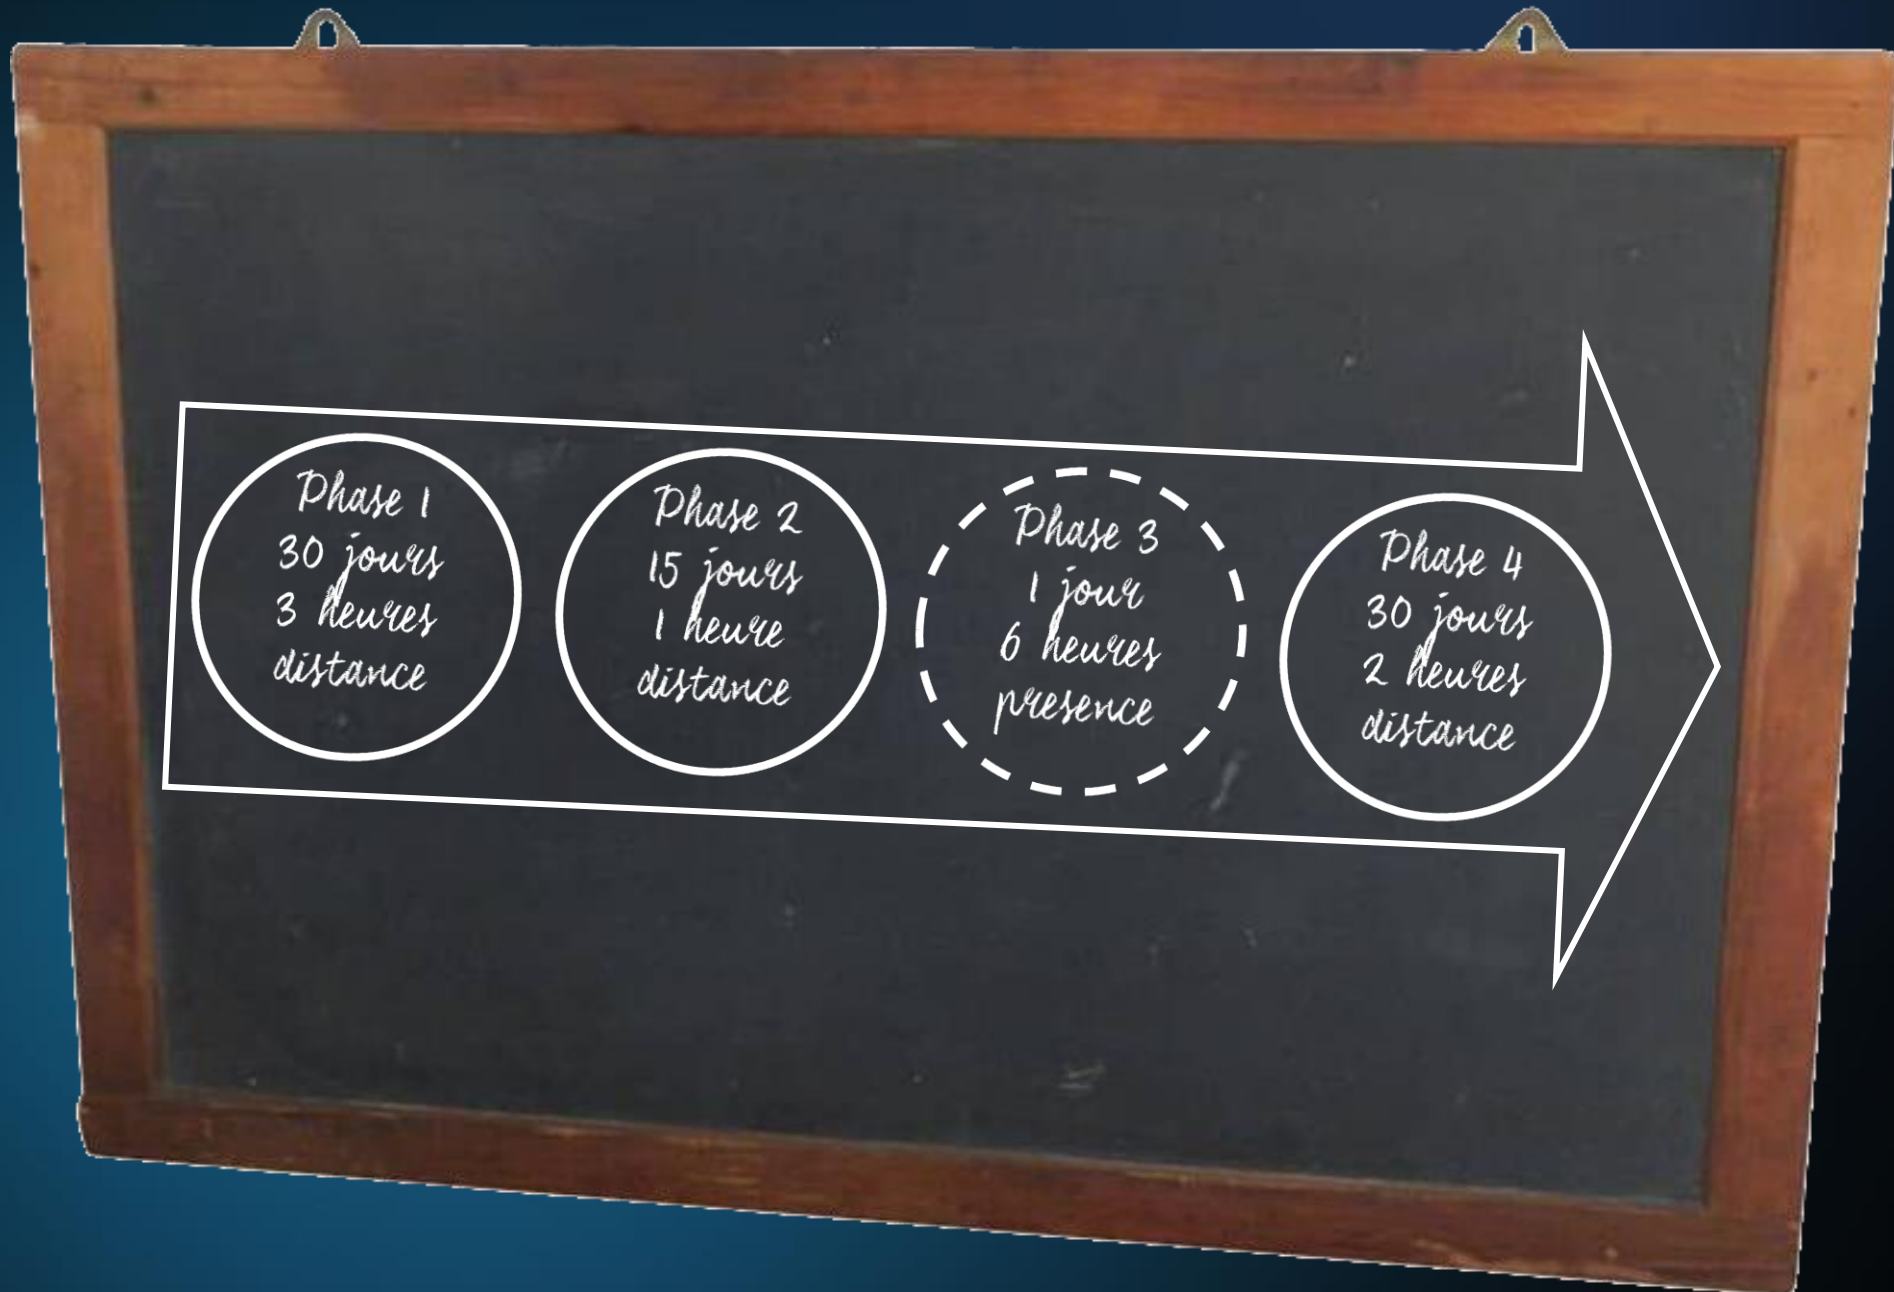 Phase 1
30 jours
3 heures
distance
Phase 2
15 jours
1 heure
distance
Phase 3
1 jour
6 heures
presence
Phase 4
30 jours
2 heures
distance